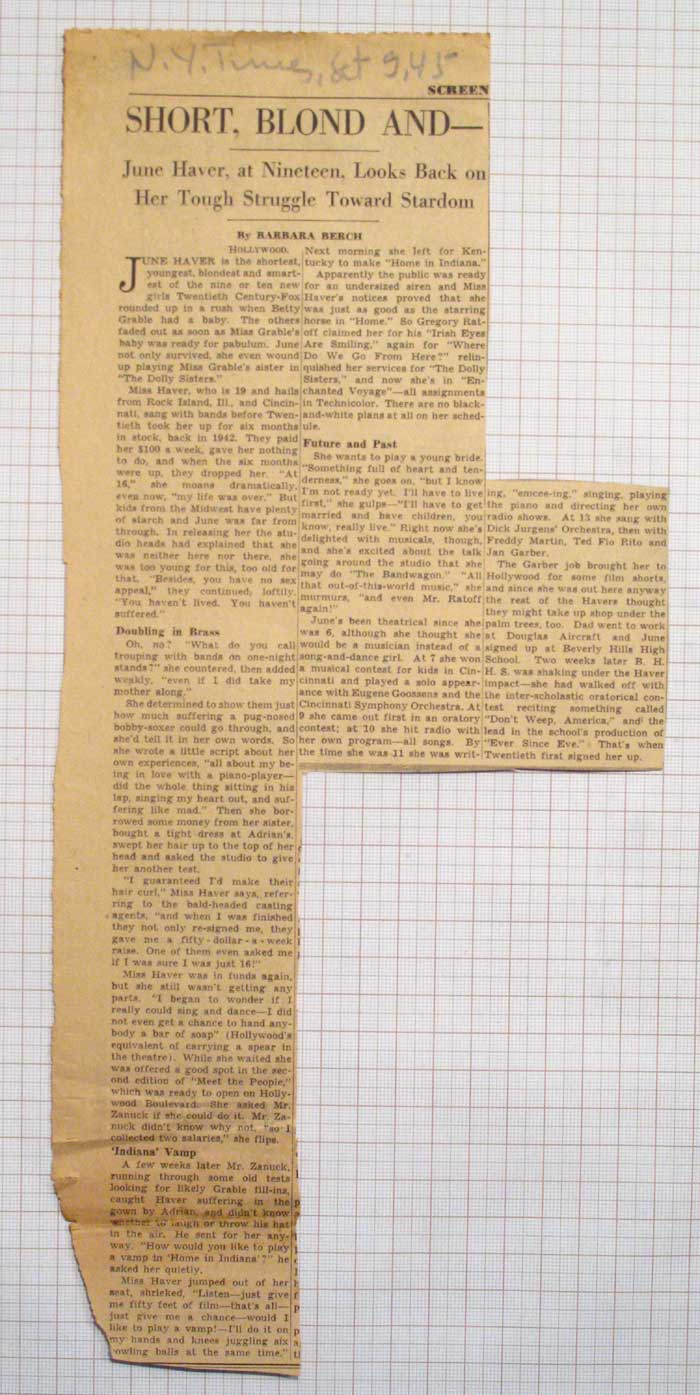 N.Y. Times, 9, 45
SCREEN
SHORT, BLOND AND—
June Haver, at Nineteen, Looks Back on
Her Tough Struggle Toward Stardom
By BARBARA BERCH
HOLLYWOOD.
JUNE HAVER is the shortest,
youngest, blondest and smart-
est of the nine or ten new
girls Twentieth Century-Fox
rounded up in a rush when Betty
Grable had a baby. The others
faded out as soon as Miss Grable's
baby was ready for pabulum. June
not only survived, she even wound
up playing Miss Grable's sister in
"The Dolly Sisters."
Miss Haver, who is 19 and hails
from Rock Island, Ill., and Cincin-
nati, sang with bands before Twen-
tieth took her up for six months
in stock, back in 1942. They paid
her $100 a week, gave her nothing
to do, and when the six months
were up, they dropped her. "At
16," she moans dramatically,
even now, "my life was over." But
kids from the Midwest have plenty
of starch and June was far from
through. In releasing her the stu-
dio heads had explained that she
was neither here nor there, she
was too young for this, too old for
that. "Besides, you have no sex
appeal," they continued, loftily.
"You haven't lived. You haven't
suffered."
Doubling in Brass
Oh, no? "What do you call
trouping with bands on one-night
stands?" she countered, then added
weakly, "even if I did take my
mother along."
She determined to show them just
how much suffering a pug-nosed
bobby-soxer could go through, and
she'd tell it in her own words. So
she wrote a little script about her
own experiences, "all about my be-
ing in love with a piano-player—
did the whole thing sitting in his
lap, singing my heart out, and suf-
fering like mad." Then she bor-
rowed some money from her sister,
bought a tight dress at Adrian's,
swept her hair up to the top of her
head and asked the studio to give
her another test.
"I guaranteed I'd make their
hair curl," Miss Haver says, refer-
ring to the bald-headed casting
agents, "and when I was finished
they not only re-signed me, they
gave me a fifty-dollar-a-week
raise. One of them even asked me
if I was sure I was just 16!"
Miss Haver was in funds again,
but she still wasn't getting any
parts. "I began to wonder if I
really could sing and dance—I did
not even get a chance to hand any-
body a bar of soap" (Hollywood's
equivalent of carrying a spear in
the theatre). While she waited she
was offered a good spot in the sec-
ond edition of "Meet the People,"
which was ready to open on Holly-
wood Boulevard. She asked Mr.
Zanuck if she could do it. Mr. Za-
nuck didn't know why not, "so I
collected two salaries," she flips.
'Indiana' Vamp
A few weeks later Mr. Zanuck,
running through some old tests
looking for likely Grable fill-ins,
caught Haver suffering in the
gown by Adrian, and didn't know
whether to laugh or throw his hat
in the air. He sent for her any-
way. "How would you like to play
a vamp in 'Home in Indiana'?" he
asked her quietly.
Miss Haver jumped out of her
seat, shrieked, "Listen—just give
me fifty feet of film—that's all—
just give me a chance—would I
like to play a vamp!—I'll do it on
my hands and knees juggling six
bowling balls at the same time."
Next morning she left for Ken-
tucky to make "Home in Indiana."
Apparently the public was ready
for an undersized siren and Miss
Haver's notices proved that she
was just as good as the starring
horse in "Home." So Gregory Rat-
off claimed her for his "Irish Eyes
Are Smiling," again for "Where
Do We Go From Here?" relin-
quished her services for "The Dolly
Sisters," and now she's in "En-
chanted Voyage"—all assignments
in Technicolor. There are no black-
and-white plans at all on her sched-
ule.
Future and Past
She wants to play a young bride.
"Something full of heart and ten-
derness," she goes on, "but I know
I'm not ready yet. I'll have to live
first," she gulps—"I'll have to get
married and have children, you
know, really live." Right now she's
delighted with musicals, though,
and she's excited about the talk
going around the studio that she
may do "The Bandwagon." "All
that out-of-this-world music," she
murmurs, "and even Mr. Ratoff
again!"
June's been theatrical since she
was 6, although she thought she
would be a musician instead of a
song-and-dance girl. At 7 she won
a musical contest for kids in Cin-
cinnati and played a solo appear-
ance with Eugene Goossens and the
Cincinnati Symphony Orchestra. At
9 she came out first in an oratory
contest; at 10 she hit radio with
her own program—all songs. By
the time she was 11 she was writ-
ing, "emcee-ing," singing, playing
the piano and directing her own
radio shows. At 13 she sang with
Dick Jurgens' Orchestra, then with
Freddy Martin, Ted Fio Rito and
Jan Garber.
The Garber job brought her to
Hollywood for some film shorts,
and since she was out here anyway
the rest of the Havers thought
they might take up shop under the
palm trees, too. Dad went to work
at Douglas Aircraft and June
signed up at Beverly Hills High
School. Two weeks later B. H.
H. S. was shaking under the Haver
impact—she had walked off with
the inter-scholastic oratorical con-
test reciting something called
"Don't Weep, America," and the
lead in the school's production of
"Ever Since Eve." That's when
Twentieth first signed her up.